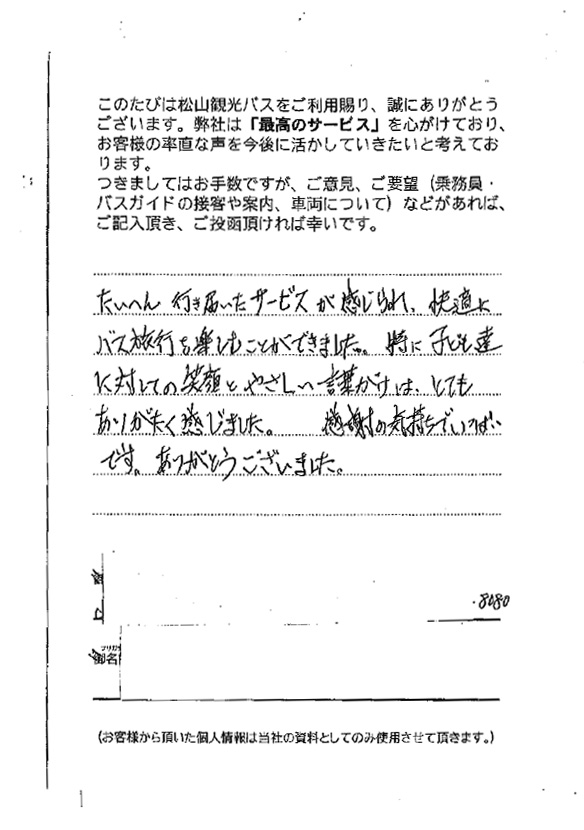 このたびは松山観光バスをご利用賜り、誠にありがとう
ございます。弊社は「最高のサービス」を心がけており、
お客様の率直な声を今後に活かしていきたいと考えてお
ります。
つきましてはお手数ですが、ご意見、ご要望（乗務員・
バスガイドの接客や案内、車両について）などがあれば、
ご記入頂き、ご投函頂ければ幸いです。
たいへん 行き届いたサービスが感じられ、快適に
バス旅行を楽しむことができました。特に子ども達
に対しての笑顔とやさしい言葉がけは、とても
ありがたく感じました。 感謝の気持ちでいっぱい
です。ありがとうございました。
8080
フリガナ
御名
（お客様から頂いた個人情報は当社の資料としてのみ使用させて頂きます。）